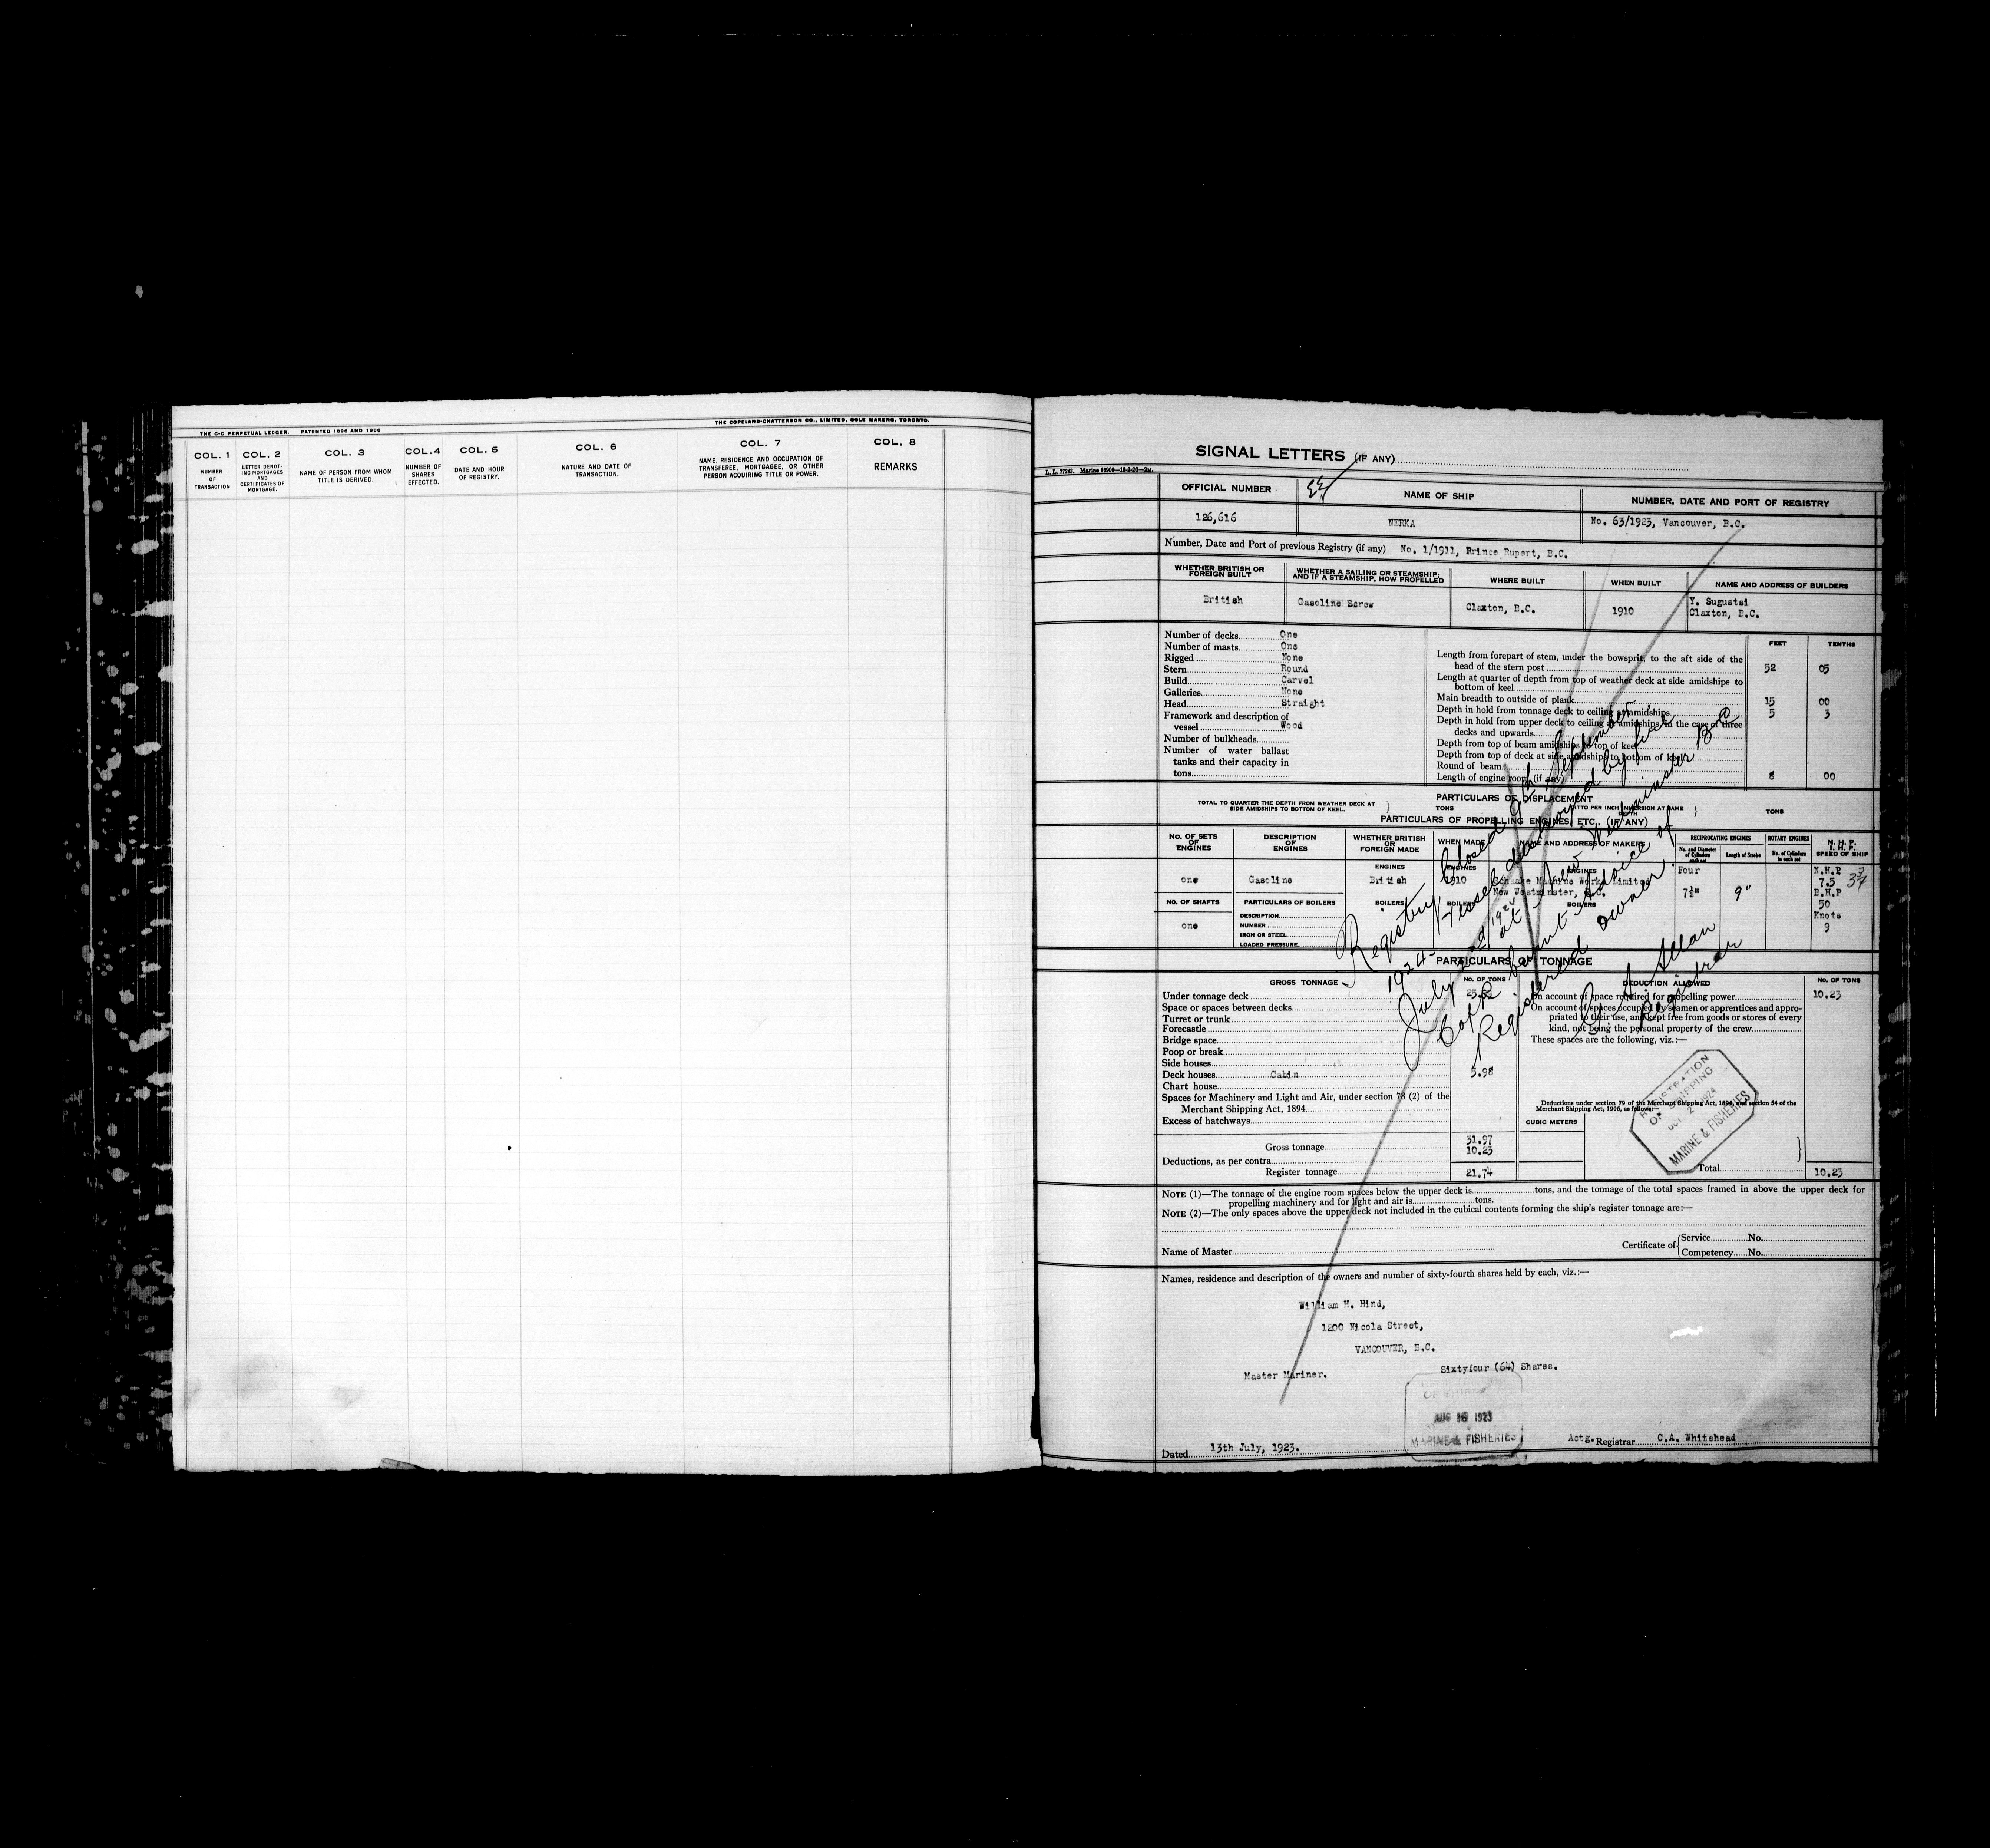 THE C-C PERPETUAL LEDGER. PATENTED 1896 AND 1900
THE COPELAND-CHATTERSON CO., LIMITED, SOLE MAKERS, TORONTO.
COL. 1 COL. 2 COL. 3 COL. 4 COL. 5 COL. 6 COL. 7 COL. 8
NUMBER OF TRANSACTION
LETTER DENOTING MORTGAGES AND CERTIFICATES OF MORTGAGE.
NAME OF PERSON FROM WHOM TITLE IS DERIVED.
NUMBER OF SHARES EFFECTED.
DATE AND HOUR OF REGISTRY.
NATURE AND DATE OF TRANSACTION.
NAME, RESIDENCE AND OCCUPATION OF TRANSFEREE, MORTGAGEE, OR OTHER PERSON ACQUIRING TITLE OR POWER.
REMARKS
SIGNAL LETTERS (IF ANY)
L. L. 77243. Marine 16909—19-2-20—2M.
OFFICIAL NUMBER NAME OF SHIP NUMBER, DATE AND PORT OF REGISTRY
126,616 NERKA No. 63/1923, Vancouver, B.C.
Number, Date and Port of previous Registry (if any) No. 1/1911, Prince Rupert, B.C.
WHETHER BRITISH OR FOREIGN BUILT
WHETHER A SAILING OR STEAMSHIP; AND IF A STEAMSHIP, HOW PROPELLED
WHERE BUILT WHEN BUILT NAME AND ADDRESS OF BUILDERS
British Gasoline Screw Claxton, B.C. 1910 Y. Sugustsi
Claxton, B.C.
Number of decks One
Number of masts One
Rigged None
Stern Round
Build Carvel
Galleries None
Head Straight
Framework and description of
vessel Wood
Number of bulkheads
Number of water ballast
tanks and their capacity in
tons
FEET TENTHS
Length from forepart of stem, under the bowsprit, to the aft side of the
head of the stern post 52 05
Length at quarter of depth from top of weather deck at side amidships to
bottom of keel
Main breadth to outside of plank 15 00
Depth in hold from tonnage deck to ceiling at amidships 5 3
Depth in hold from upper deck to ceiling at amidships, in the case of three
decks and upwards
Depth from top of beam amidships to top of keel
Depth from top of deck at side amidships to bottom of keel
Round of beam
Length of engine room (if any) 8 00
PARTICULARS OF DISPLACEMENT
TOTAL TO QUARTER THE DEPTH FROM WEATHER DECK AT SIDE AMIDSHIPS TO BOTTOM OF KEEL. TONS DITTO PER INCH IMMERSION AT SAME DEPTH TONS
PARTICULARS OF PROPELLING ENGINES, ETC. (IF ANY)
No. OF SETS OF ENGINES
DESCRIPTION OF ENGINES
WHETHER BRITISH OR FOREIGN MADE
WHEN MADE
NAME AND ADDRESS OF MAKERS
RECIPROCATING ENGINES
No. and Diameter of Cylinders in each set
Length of Stroke
ROTARY ENGINES
No. of Cylinders in each set
N. H. P.
I. H. P.
SPEED OF SHIP
ENGINES ENGINES ENGINES
one Gasoline British 1910 Schaake Machine Works Limited
New Westminster, B.C.
Four
7½" 9"
N.H.P
7.5 37
B.H.P
50
Knots
9
NO. OF SHAFTS PARTICULARS OF BOILERS BOILERS BOILERS BOILERS
one
DESCRIPTION
NUMBER
IRON OR STEEL
LOADED PRESSURE
PARTICULARS OF TONNAGE
GROSS TONNAGE NO. OF TONS DEDUCTION ALLOWED NO. OF TONS
Under tonnage deck
Space or spaces between decks
Turret or trunk
Forecastle
Bridge space
Poop or break
Side houses
Deck houses Cabin 5.98
Chart house
Spaces for Machinery and Light and Air, under section 78 (2) of the
Merchant Shipping Act, 1894
Excess of hatchways
Gross tonnage 31.97
10.23
Deductions, as per contra
Register tonnage 21.74
On account of space required for propelling power 10.23
On account of spaces occupied by seamen or apprentices and appro-
priated to their use, and kept free from goods or stores of every
kind, not being the personal property of the crew
These spaces are the following, viz.:—
Deductions under section 79 of the Merchant Shipping Act, 1894, and section 54 of the
Merchant Shipping Act, 1906, as follows:—
CUBIC METERS
Total 10.23
Registry Closed 9th September
1924. Vessel destroyed by fire
July 1924 at New Westminster B.C.
Advice of
Registered owner
Registrar
REGISTRATION
OF SHIPPING
OCT 2 1924
MARINE & FISHERIES
NOTE (1)—The tonnage of the engine room spaces below the upper deck is tons, and the tonnage of the total spaces framed in above the upper deck for
propelling machinery and for light and air is tons.
NOTE (2)—The only spaces above the upper deck not included in the cubical contents forming the ship's register tonnage are:—
Name of Master
Certificate of Service No.
Competency No.
Names, residence and description of the owners and number of sixty-fourth shares held by each, viz.:—
William H. Hind,
1200 Nicola Street,
VANCOUVER, B.C.
Master Mariner. Sixtyfour (64) Shares.
OF SHIPPING
AUG 16 1923
MARINE & FISHERIES
Dated 13th July, 1923.
Actg. Registrar C.A. Whitehead